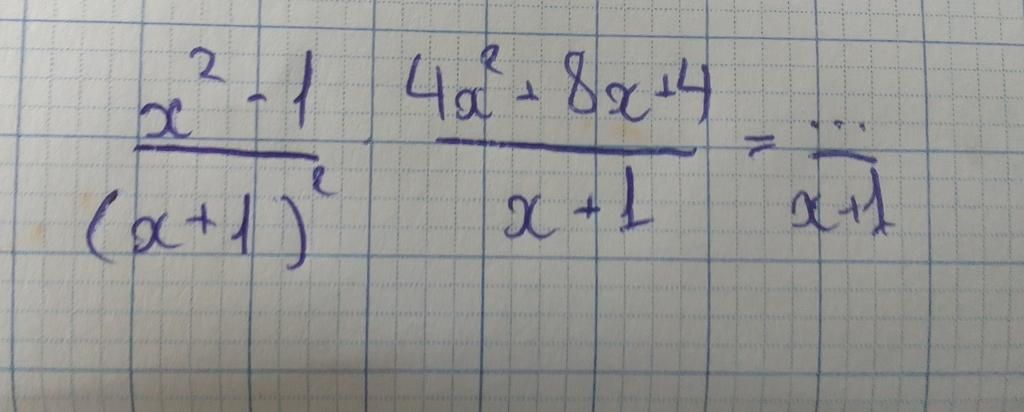 x² - 1 / (x+1)² · 4x² + 8x + 4 / x + 1 = ... / x+1